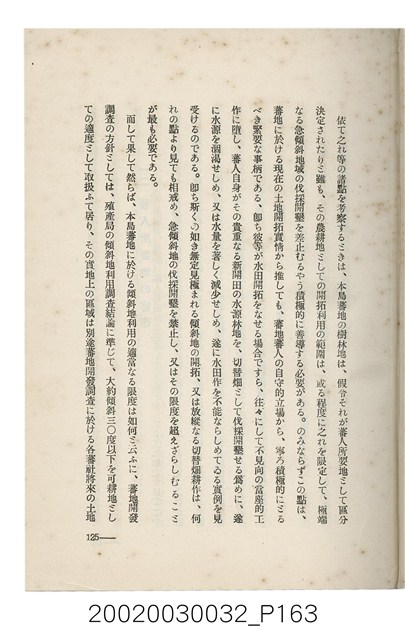 依て之れ等の諸點を考察するときは、本島蕃地の樹林地は、假令それが蕃人所要地として區分
決定されたりと雖も、その農耕地としての開拓利用の範圍は、或る程度に之れを限定して、極端
なる急傾斜地域の伐採開墾を差止むるやう積極的に善導する必要がある。のみならずこの點は、
蕃地に於ける現在の土地開拓實情から推しても、蕃地蕃人の自守的立場から、寧ろ積極的にとる
べき緊要な事柄である、卽ち彼等が水田開拓をなせる場合ですら、往々にして不見向の當座的工
作に墮し、蕃人自身がその貴重なる新開田の水源林地を、切替畑として伐採開墾せる爲めに、遂
に水源を涸渇せしめ、又は水量を著しく減少せしめ、遂に水田作を不能ならしめてゐる實例を見
受けるのである。卽ち斯くの如き無定見極まれる傾斜地の開拓、又は放縱なる切替畑耕作は、何
れの點より見ても相戒め、急傾斜地の伐採開墾を禁止し、又はその限度を超えざらしむること
が最も必要である。
而して果して然らば、本島蕃地に於ける傾斜地利用の適當なる限度は如何と云ふに、蕃地開發
調査の方針としては、殖產局の傾斜地利用調査結論に準じて、大約傾斜三〇度以下を可耕地とし
ての適度として取扱ふて居り、その實地上の區域は別途蕃地開發調査に於ける各蕃社將來の土地
125—
20020030032_P163